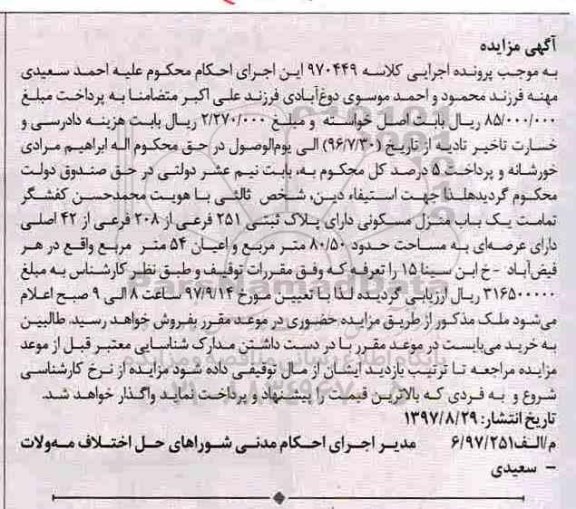 آگهی مزایده
به موجب پرونده اجرایی کلاسه ۹۷۰۴۴۹ این اجرای احکام محکوم علیه احمد سعیدی
مهنه فرزند محمود و احمد موسوی دوغ‌آبادی فرزند علی اکبر متضامنا به پرداخت مبلغ
۸۵/۰۰۰/۰۰۰ ریال بابت اصل خواسته و مبلغ ۲/۲۷۰/۰۰۰ ریال بابت هزینه دادرسی و
خسارت تاخیر تادیه از تاریخ (۹۶/۷/۳۰) الی یوم‌الوصول در حق محکوم اله ابراهیم مرادی
خورشانه و پرداخت ۵ درصد کل محکوم به، بابت نیم عشر دولتی در حق صندوق دولت
محکوم گردیدهلذا جهت استیفاء دین، شخص ثالثی با هویت محمدحسن کفشگر
تمامت یک باب منزل مسکونی دارای پلاک ثبتی ۲۵۱ فرعی از ۲۰۸ فرعی از ۴۲ اصلی
دارای عرصه‌ای به مساحت حدود ۸۰/۵۰ متر مربع و اعیان ۵۴ متر مربع واقع در هر
فیض‌آباد -خ ابن سینا ۱۵ را تعرفه که وفق مقررات توقیف و طبق نظر کارشناس به مبلغ
۳۱۶۵۰۰۰۰۰ ریال ارزیابی گردیده لذا با تعیین مورخ ۹۷/۹/۱۴ ساعت ۸ الی ۹ صبح اعلام
می‌شود ملک مذکور از طریق مزایده حضوری در موعد مقرر بفروش خواهد رسید. طالبین
به خرید می‌بایست در موعد مقرر با در دست داشتن مدارک شناسایی معتبر قبل از موعد
مزایده مراجعه تا ترتیب بازدید ایشان از مال توقیفی داده شود مزایده از نرخ کارشناسی
شروع و به فردی که بالاترین قیمت را پیشنهاد و پرداخت نماید واگذار خواهد شد.
تاریخ انتشار: ۱۳۹۷/۸/۲۹
م/الف۶/۹۷/۲۵۱ مدیر اجرای احکام مدنی شوراهای حل اختلاف مه‌ولات
- سعیدی